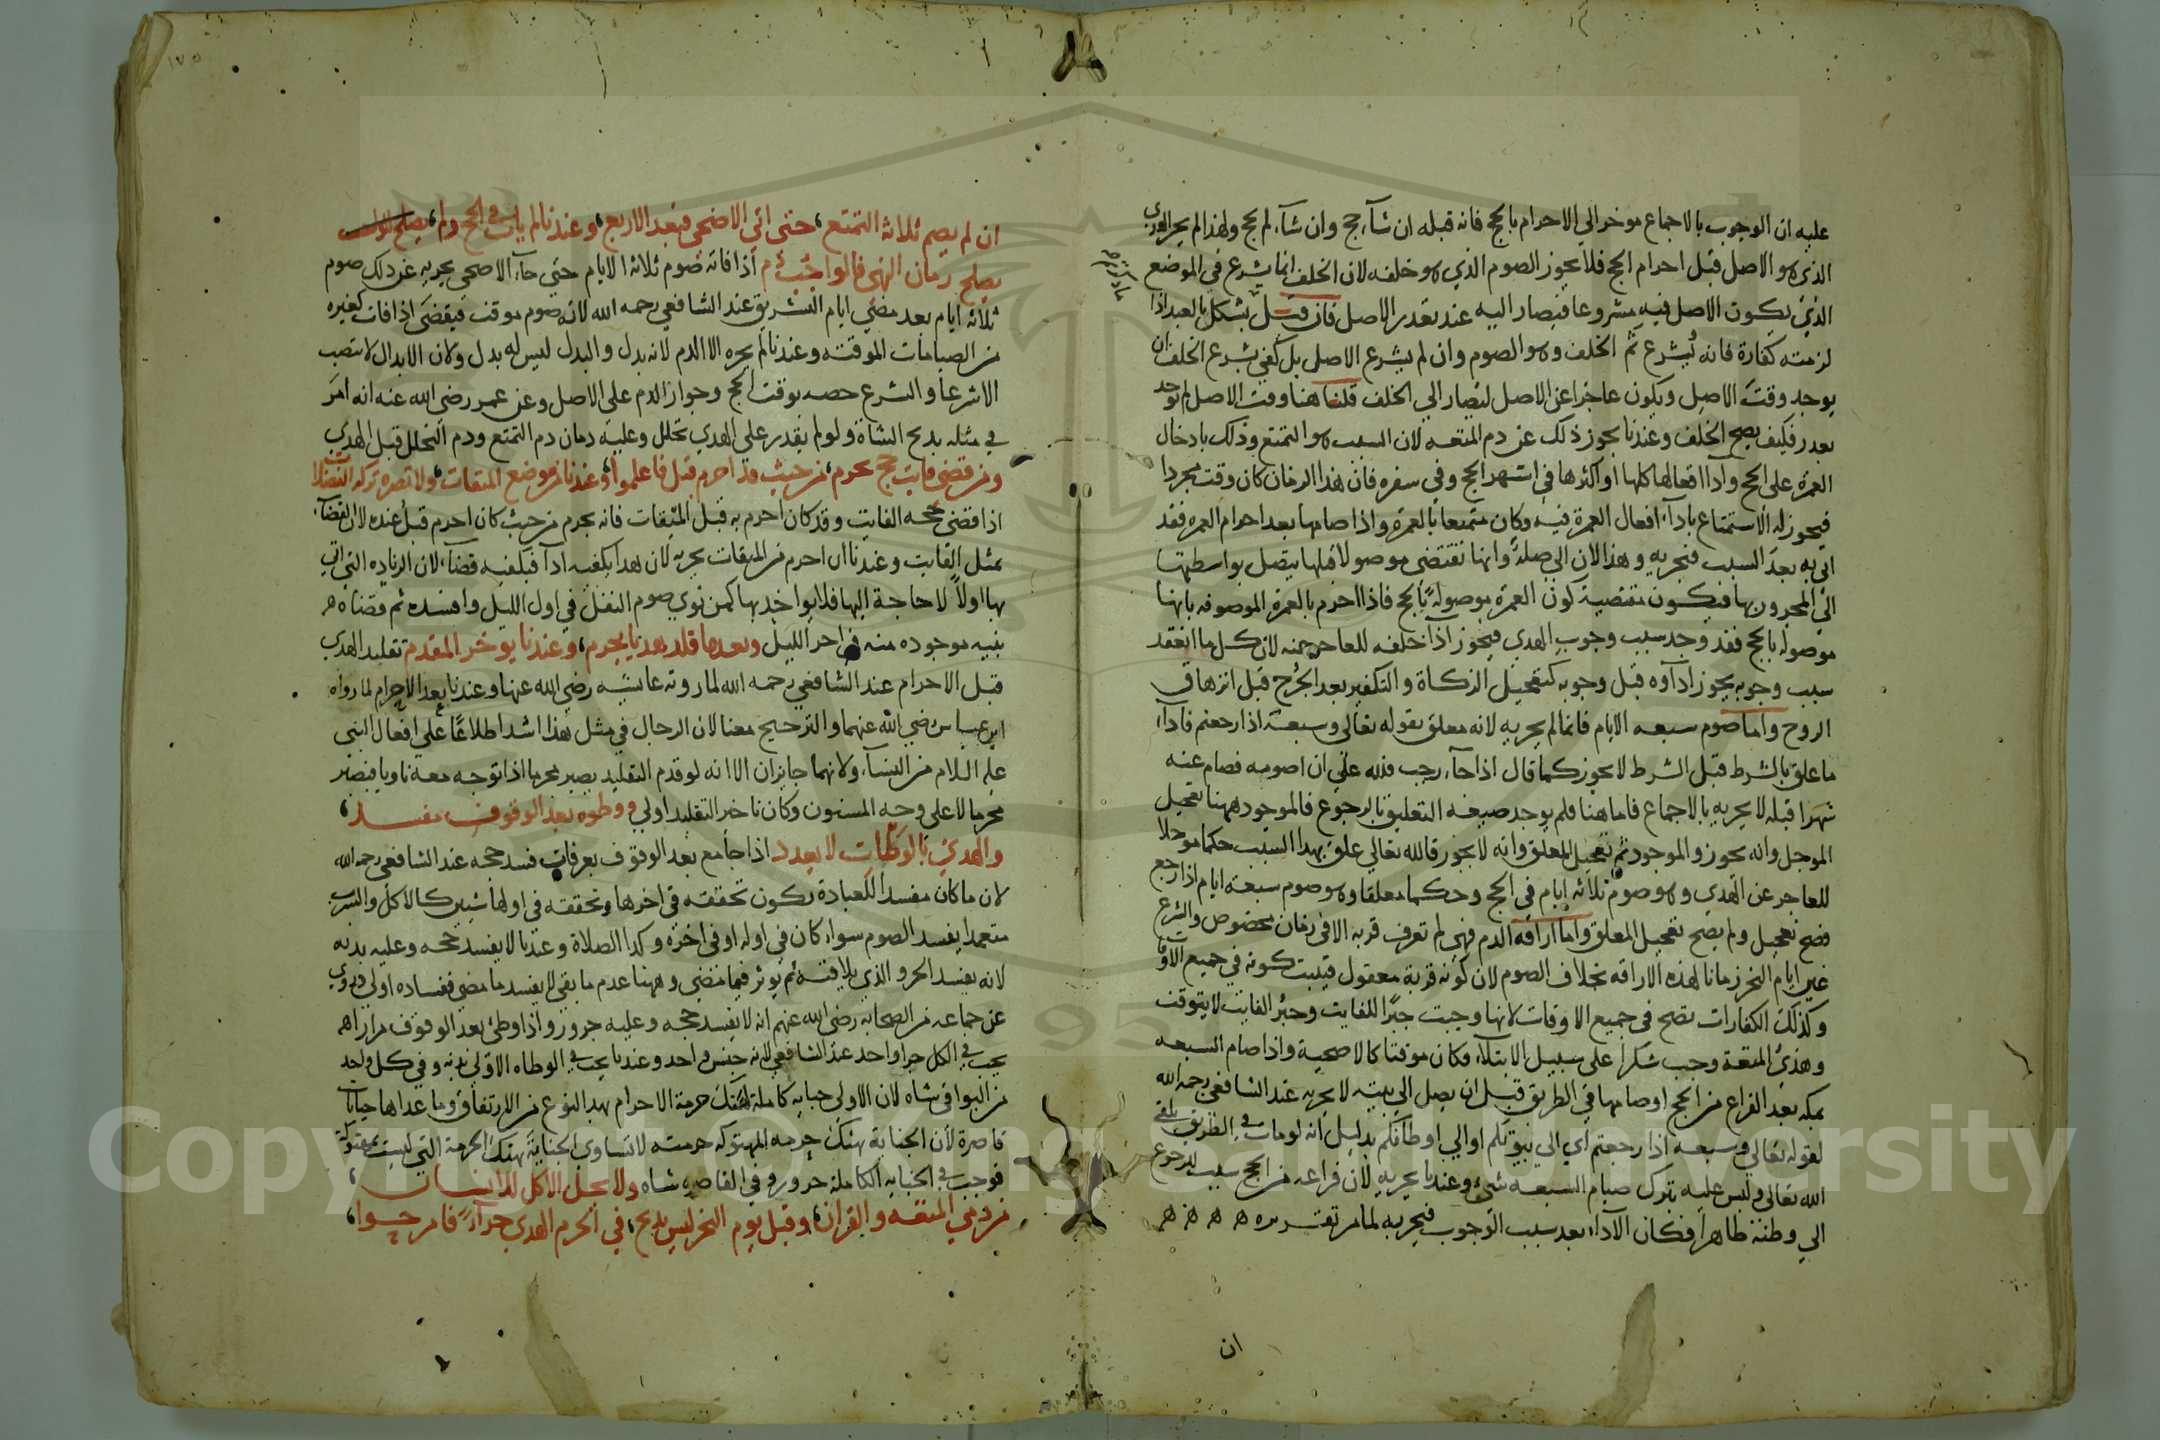 عليه ان الوجوب بالاجماع موخر الي الاحرام بالحج فانه قبله ان شآء حج وان شآء لم يحج ولهذا لم يجز الهدي
الذي هو الاصل قبل احرام الحج فلا يجوز الصوم الذي هو خلفه لان الخلف انما يشرع في الموضع
الذي يكون الاصل فيه مشروعا فيصار اليه عند تعذر الاصل فان قيل يشكل بالعبد اذا
لزمته كفارة فانه يشرع ثم الخلف وهو الصوم وان لم يشرع الاصل بل كفي بشرع الخلف ان
يوجد وقت الاصل ويكون عاجزا عن الاصل ليصار الي الخلف قلنا هنا وقت الاصل لم يوجد
بعد فكيف يصح الخلف وعندنا يجوز ذلك عن دم المتعه لان السبب هو التمتع وذلك بادخال
العمرة علي الحج وادآ افعالها كلها او اكثرها في اشهر الحج وفي سفره فان هذا الزمان كان وقت مجردا
فيجوز له الاستمتاع بادآء افعال العمرة فيه وكان متمتعا بالعمرة واذا صامها بعد احرام العمره فقد
اتي به بعد السبب فيجزيه وهذا لان الي صلة وانها تقتضي موصولا قبلها يتصل بواسطتها
الي المجرور بها فيكون مقتضية كون العمرة موصولة بالحج فاذا احرم بالعمرة الموصوفه بانها
موصولة بالحج فقد وجد سبب وجوب الهدي فيجوز ادآ خلفه للعاجز عنه لان كل ما انعقد
سبب وجوبه يجوز ادآوه قبل وجوبه كتعجيل الزكاة والتكفير بعد الجرح قبل انزهاق
الروح واما صوم سبعه الايام فانما لم يجزيه لانه معلق بقوله تعالي وسبعة اذا رجعتم فادآء
ما علق بالشرط قبل الشرط لا يجوز كما قال اذا جآء رجب فلله علي ان اصومه فصام عنه
شهرا قبله لا يجزيه بالاجماع فاما هنا فلم يوجد صيغه التعليق بالرجوع فالموجود ههنا تعجيل
الموجل وانه يجوز والموجود ثم تعجيل المعلق وانه لا يجوز فالله تعالي علق بهذا السبب حكما موجلا
للعاجز عن الهدي وهو صوم ثلاثه ايام في الحج وحكما معلقا وهو صوم سبعة ايام اذا رجع
فصح تعجيل ولم يصح تعجيل المعلق واما اراقه الدم فهي لم تعرف قربه الا في زمان مخصوص والشرع
عين ايام النحر زمانا لهذه الاراقه بخلاف الصوم لان كونه قربة معقول فيثبت كونه في جميع الاوقا
وكذلك الكفارات تصح في جميع الاوقات لانها وجبت جبرا للفايت وجبر الفايت لا يتوقت
وهدي المتعة وجب شكرا علي سبيل الابتلآء فكان موقتا كالاضحية واذا صام السبعه
بمكه بعد الفراغ من الحج او صامها في الطريق قبل ان يصل الي بيته لا يجزيه عند الشافعي رحمه الله
لقوله تعالي وسبعه اذا رجعتم اي الي بيوتكم او الي اوطانكم بدليل انه لو مات في الطريق يلقي
الله تعالي وليس عليه بترك صيام السبعه شيء وعندنا يجزيه لان فراغه من الحج سبب للرجوع
الي وطنه ظاهرا فكان الاداء بعد سبب الوجوب فيجزيه لما مر تقريره ه ه ه ه ه
ان
ان لم يصم ثلاثة التمتع، حتى اتي الاضحي فبعد الاربع، وعندنا لم يات في الحج ولم، يصلح
يصلح زمان النهي فالواجب دم اذا فاته صوم ثلاثة الايام حتي جآء الاضحي يجزيه عن ذلك صوم
ثلاثه ايام بعد مضي ايام التشريق عند الشافعي رحمه الله لانه صوم موقت فيقضي اذا فات كغيره
من الصيامات الموقته وعندنا لم يجزه الا الدم لانه بدل والبدل ليس له بدل ولان الابدال لا تنصب
الا شرعا والشرع خصه بوقت الحج وجواز الدم علي الاصل وعن عمر رضي الله عنه انه امر
في مثله بذبح الشاة ولو لم يقدر علي الهدي تحلل وعليه دمان دم التمتع ودم التحلل قبل الهدي
ومن قضى فايت حج يحرم، من حيث قد احرم قبل فاعلموا، وعندنا من موضع الميقات، ولا تضره
اذا قضي حجه الفايت وقد كان احرم به قبل الميقات فانه يحرم من حيث كان احرم قبل عنده لان القضآء
بمثل الفايت وعندنا ان احرم من الميقات يجزيه لان هذا يكفيه ادآ فيكفيه قضآء لان الزياده التي اتي
بها اولا لا حاجة اليها فلا يواخذ بها كمن نوي صوم النفل في اول الليل وافسده ثم قضاه
بنيه موجوده منه في اخر الليل وبعدما قلد هديا يحرم، وعندنا يوخر المقدم تقليد الهدي
قبل الاحرام عند الشافعي رحمه الله لما روته عايشه رضي الله عنها وعندنا بعد الاحرام لما رواه
ابن عباس رضي الله عنهما والترجيح معنا لان الرجال في مثل هذا اشد اطلاعا علي افعال النبي
عليه السلام من النسآء ولانهما جايزان الا انه لو قدم التقليد يصير محرما اذا توجه معه ناويا فيصير
محرما لا علي وجه المسنون وكان تاخير التقليد اولي ووطوه بعد الوقوف مفسد،
والهدي بالوطآت لا يعدد اذا جامع بعد الوقوف بعرفات فسد حجه عند الشافعي رحمه الله
لان ما كان مفسدا للعبادة يكون تحققه في اخرها وتحققه في اولها شيين كالاكل والشرب
متعمدا يفسد الصوم سواء كان في اوله او في اخره وكذا الصلاة وعندنا لا يفسد حجه وعليه بدنه
لانه يفسد الجزو الذي يلاقيه ثم يوثر فيما مضي وههنا عدم ما بقي لم يفسد ما مضي ففساده اولي وروي
عن جماعه من الصحابه رضي الله عنهم انه لا يفسد حجه وعليه جزور واذا وطئ بعد الوقوف مرارا هم
يجب في الكل جزا واحد عند الشافعي لانه جنس واحد وعندنا يجب في الوطاه الاولي بدنه وفي كل واحد
من البواقي شاه لان الاولي جنايه كاملة لهتك حرمة الاحرام بهذا النوع من الارتفاق وما عداها جنايات
قاصرة لان الجناية بهتك حرمه المهتوكه حرمته لا تساوي الجناية بهتك الحرمة التي ليست بمهتوكة
فوجب في الجنايه الكاملة جزور وفي القاصره شاه ولا يحل الاكل
من دمي المتعه والقران، وقبل يوم النحر ليس يذبح، في الحرم الهدي جزآء
Copyright © King Saud University